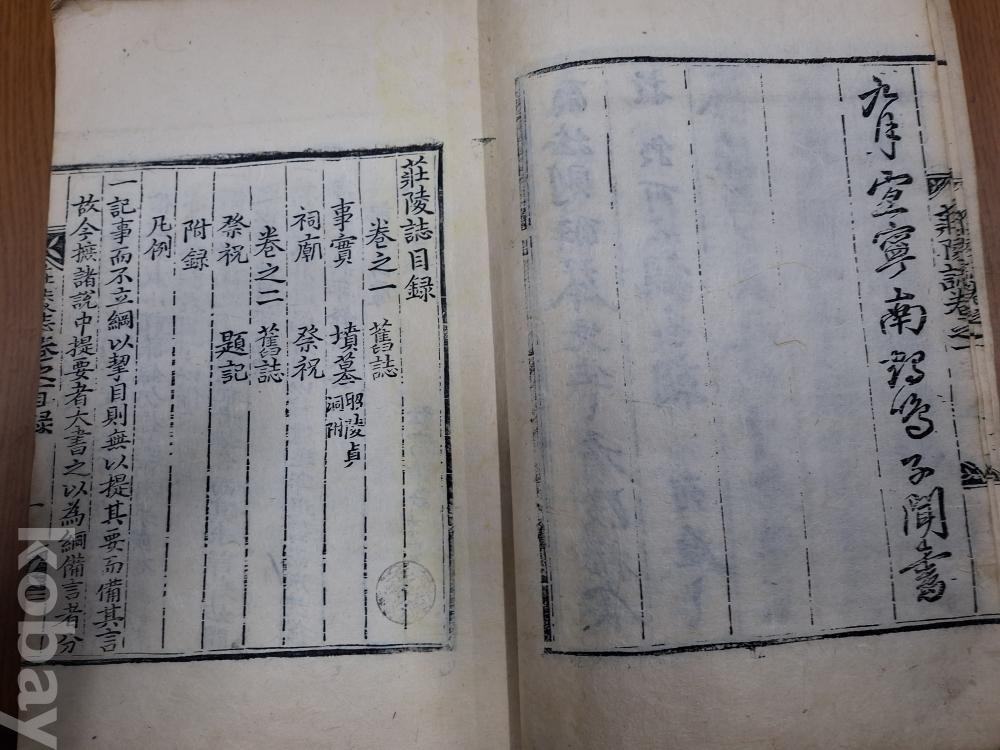 莊陵誌卷之一
九月宜寧南鶴鳴子聞書
莊陵誌目錄
卷之一 舊誌
事實 墳墓 昭陵貞
洞附
祠廟 祭祝
卷之二 舊誌
祭祝 題記
附錄
凡例
一記事而不立綱以挈目則無以提其要而備其言
故今摭諸說中提要者大書之以為綱備言者分
莊陵誌卷之一目錄
一
kobay